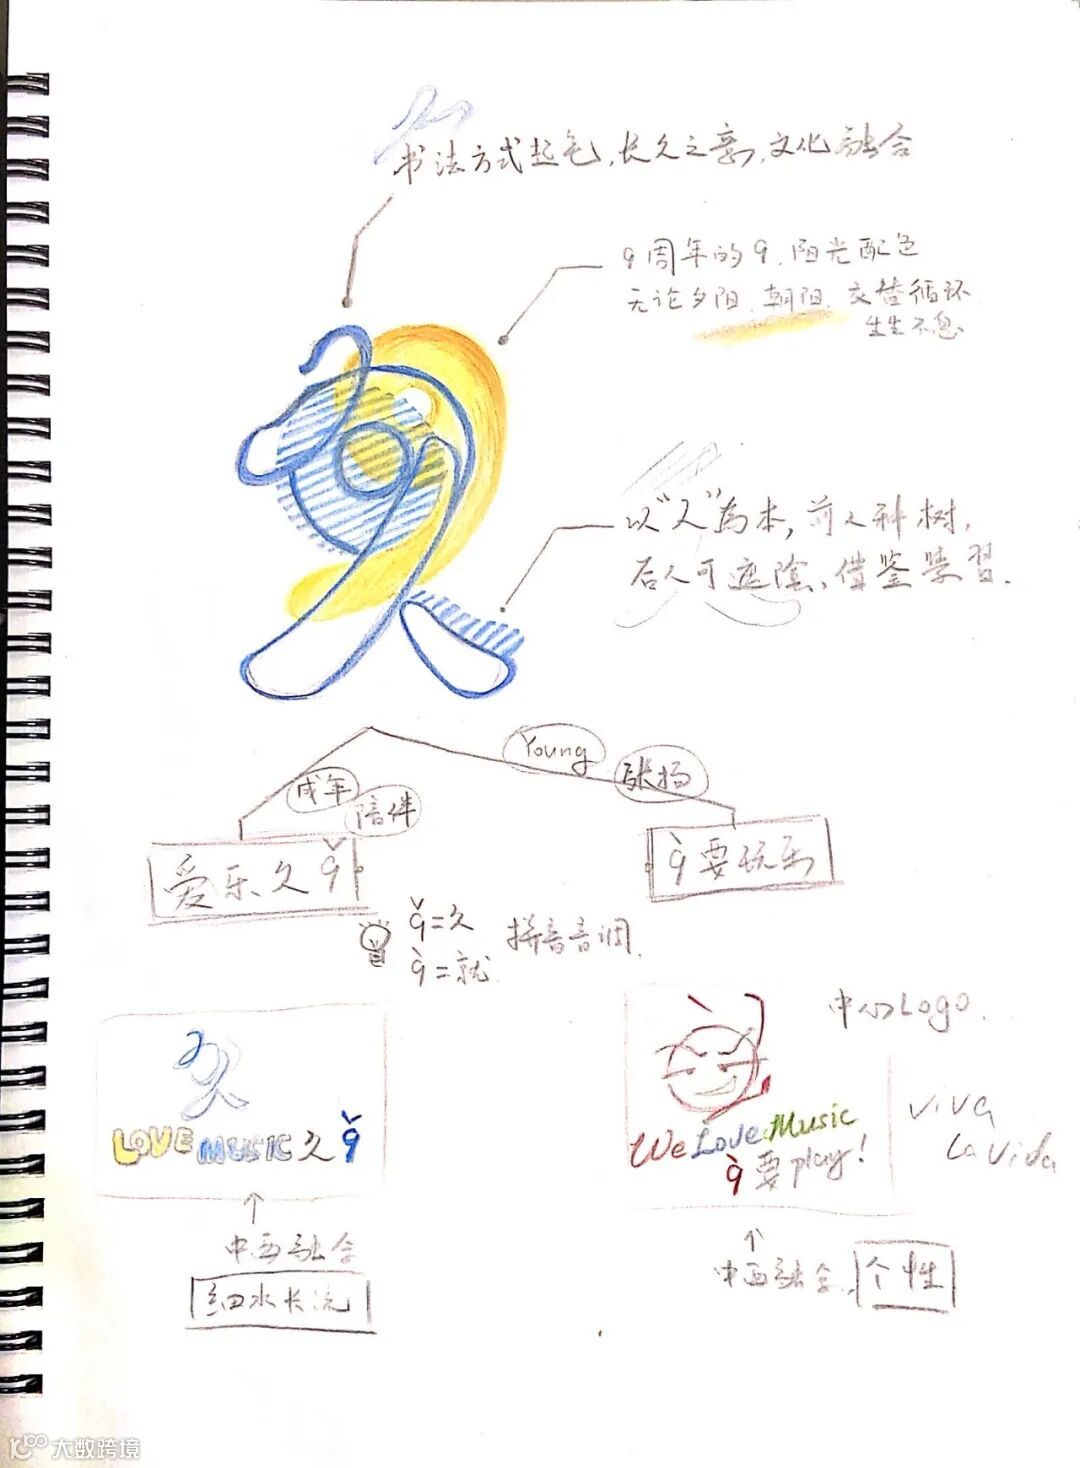 书法方式起笔，长久之意，文化融合
9周年的9. 阳光配色
无论夕阳. 朝阳. 交替循环
生生不息
以“人”為本，前人种树，
后人可遮陰、借鉴學習.
Young
张扬
成年
陪伴
爱乐久9̌
9̀要玩乐
9̌=久
9̀=就
拼音音调.
中心Logo.
久
LOVE MUSIC 久 9̌
We Love Music
9̀ 要 play!
Viva
La Vida
中西融合
细水长流
中西融合.
个性
大数跨境